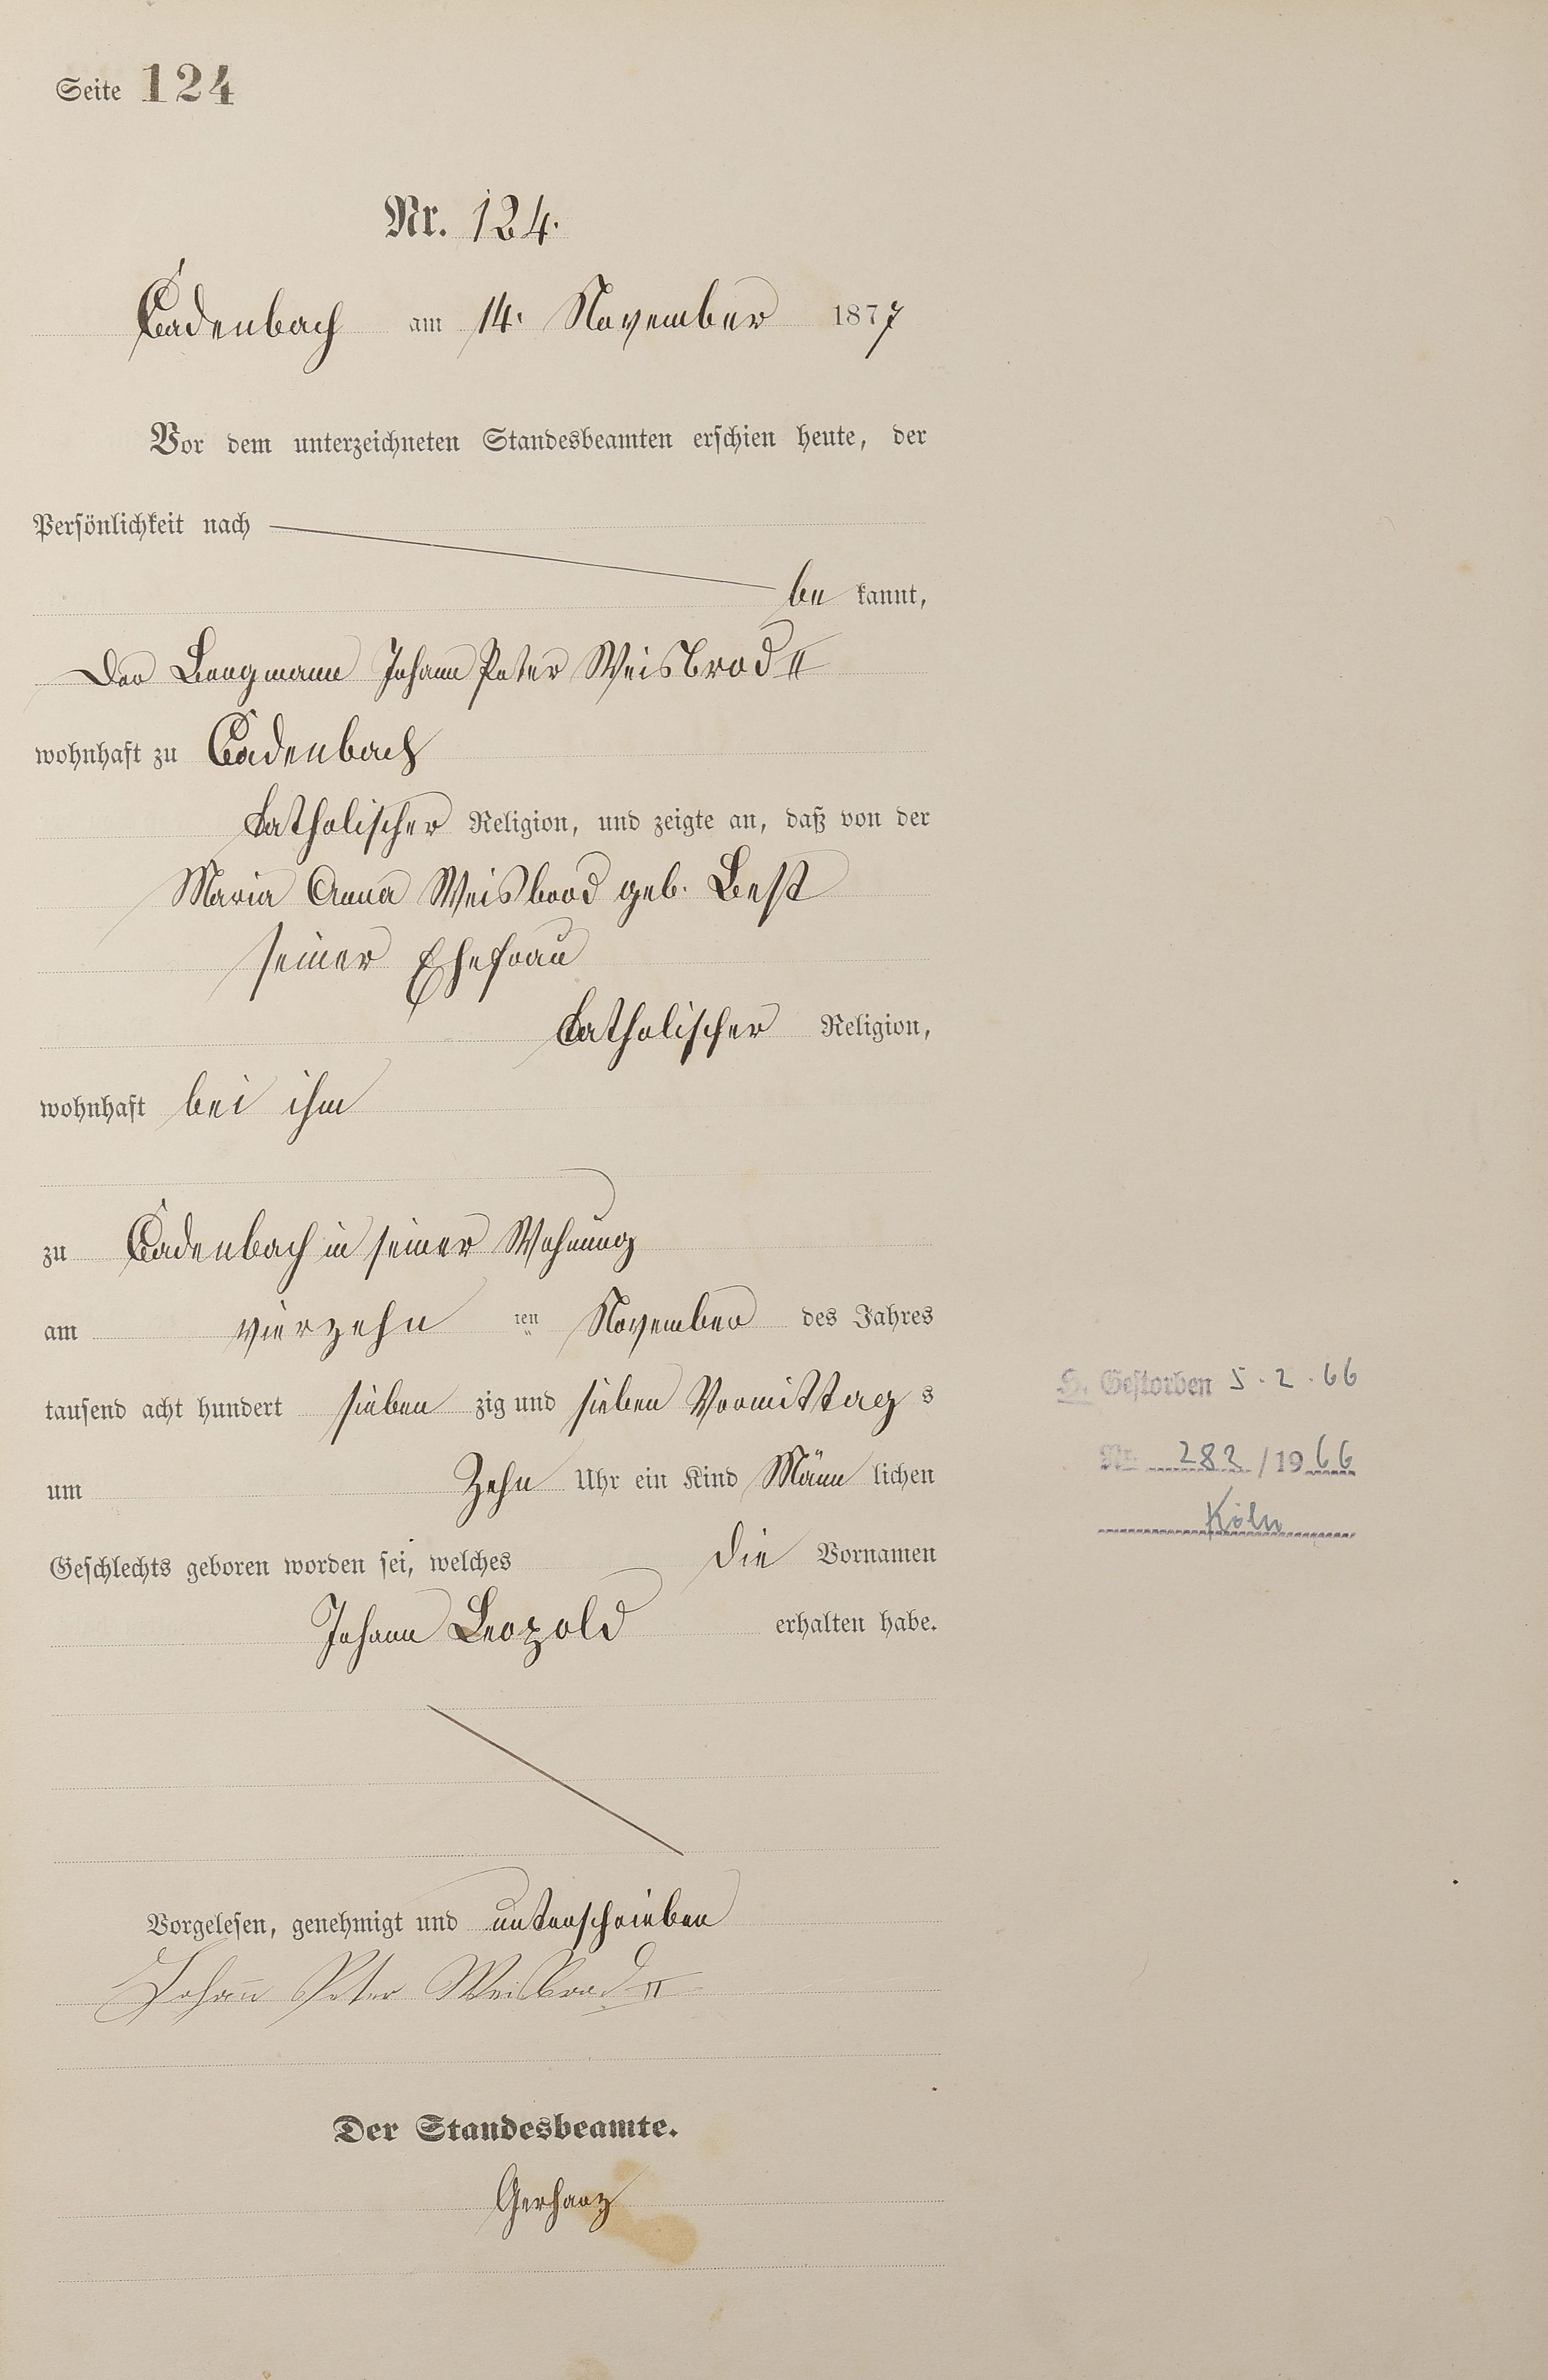 Seite 124
Nr. 124.
Cadenbach am 14. November 1877
Vor dem unterzeichneten Standesbeamten erschien heute, der
Persönlichkeit nach
be kannt,
Der Bergmann Johann Peter Weisbrod II
wohnhaft zu Cadenbach
katholischer Religion, und zeigte an, daß von der
Maria Anna Weisbrod geb. Best
seiner Ehefrau
katholischer Religion,
wohnhaft bei ihm
zu Cadenbach in seiner Wohnung
am vierzehn ten November des Jahres
tausend acht hundert sieben zig und sieben Vormittag s
um Zehn Uhr ein Kind Männ lichen
Geschlechts geboren worden sei, welches die Vornamen
Johann Leopold erhalten habe.
Vorgelesen, genehmigt und unterschrieben
Johann Peter Weisbrod II
Der Standesbeamte.
Gerharz
H. Gestorben 5.2.66
Nr. 282/1966
Köln